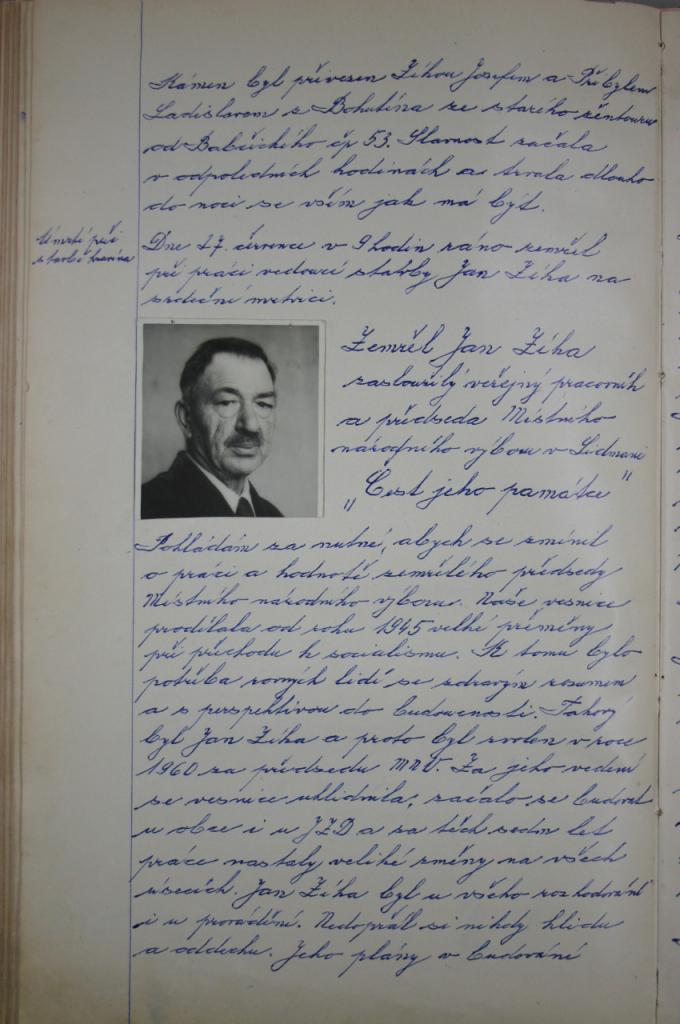 Kámen byl přivezen Zíhou Josefem a Přibylem
Ladislavem z Bohutína ze starého žentouru
od Babčického čp 53. Slavnost začala
v odpoledních hodinách a trvala dlouho
do noci se vším jak má být.
Úmrtí při
stavbě kravína
Dne 27. července v 9 hodin ráno zemřel
při práci vedoucí stavby Jan Zíha na
srdeční mrtvici.
Zemřel Jan Zíha
zasloužilý veřejný pracovník
a předseda Místního
národního výboru v Lidmani
„Čest jeho památce"
Pokládám za nutné, abych se zmínil
o práci a hodnotě zemřelého předsedy
Místního národního výboru. Naše vesnice
prodělala od roku 1945 velké přeměny
při přechodu k socialismu. K tomu bylo
potřeba rovných lidí se zdravým rozumem
a s perspektivou do budoucnosti. Takový
byl Jan Zíha a proto byl zvolen v roce
1960 za předsedu MNV. Za jeho vedení
se vesnice uklidnila, začalo se budovat
v obci i v JZD a za těch sedm let
práce nastaly veliké změny na všech
úsecích. Jan Zíha byl u všeho rozhodování
i u provádění. Nedopřál si nikdy klidu
a oddechu. Jeho plány v budování